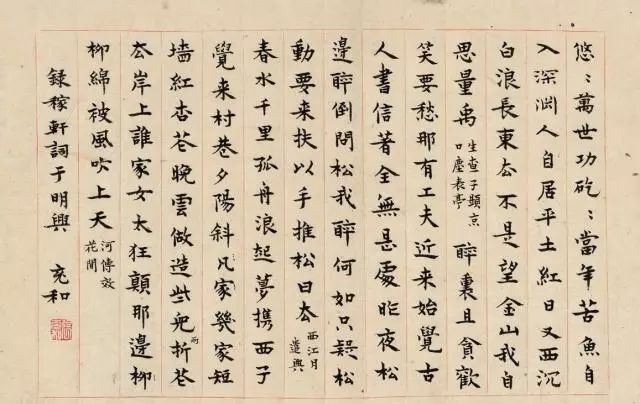 悠〻萬世功矻〻當年苦魚自
入深淵人自居平土紅日又西沉
白浪長東去不是望金山我自
思量禹 生查子題京口塵表亭 醉裏且貪歡
笑要愁那有工夫近来始覺古
人書信著全無是處昨夜松
邊醉倒問松我醉何如只疑松
動要来扶以手推松曰去 西江月遣興
春水千里孤舟浪起夢携西子
覺来村巷夕陽斜凡家幾家短
墻紅杏花晚雲做造些兒雨折花
去岸上誰家女太狂顛那邊柳
柳綿被風吹上天 河傳效花間
録稼軒詞于明興 充和